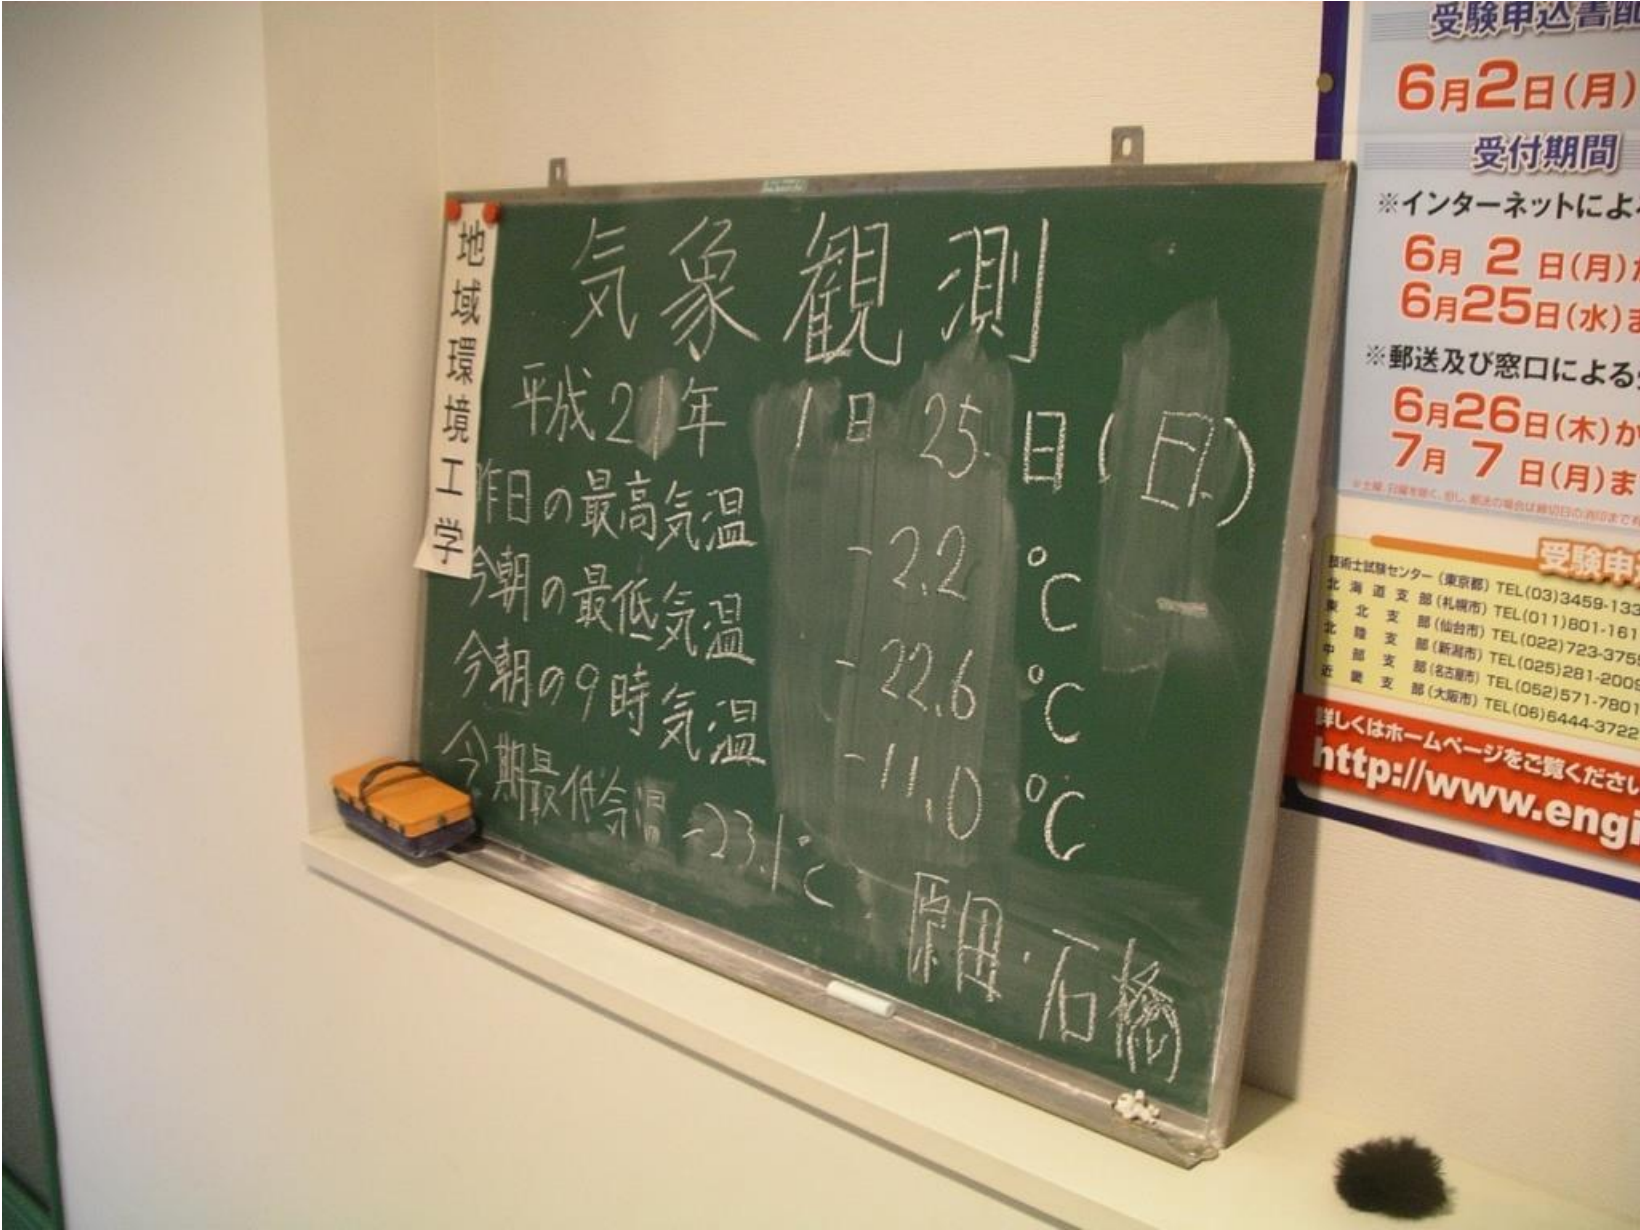 地域環境工学
気象観測
平成21年 1日 25日(日)
昨日の最高気温 -2.2 ℃
今朝の最低気温 -22.6 ℃
今朝の9時気温 -11.0 ℃
今期最低気温 -23.1℃
原田・石橋
受験申込書配
6月2日(月)
受付期間
※インターネットによ
6月 2 日(月)か
6月25日(水)ま
※郵送及び窓口による
6月26日(木)か
7月 7 日(月)ま
受験申
技術士試験センター(東京都) TEL(03)3459-133
北海道支部(札幌市) TEL(011)801-161
東北支部(仙台市) TEL(022)723-375
北陸支部(新潟市) TEL(025)281-2009
中部支部(名古屋市) TEL(052)571-7801
近畿支部(大阪市) TEL(06)6444-3722
詳しくはホームページをご覧ください
http://www.engi